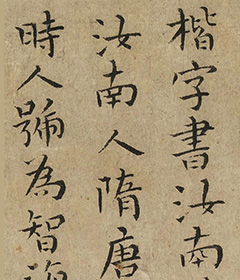 楷字書汝南
汝南人隋唐
時人號為智